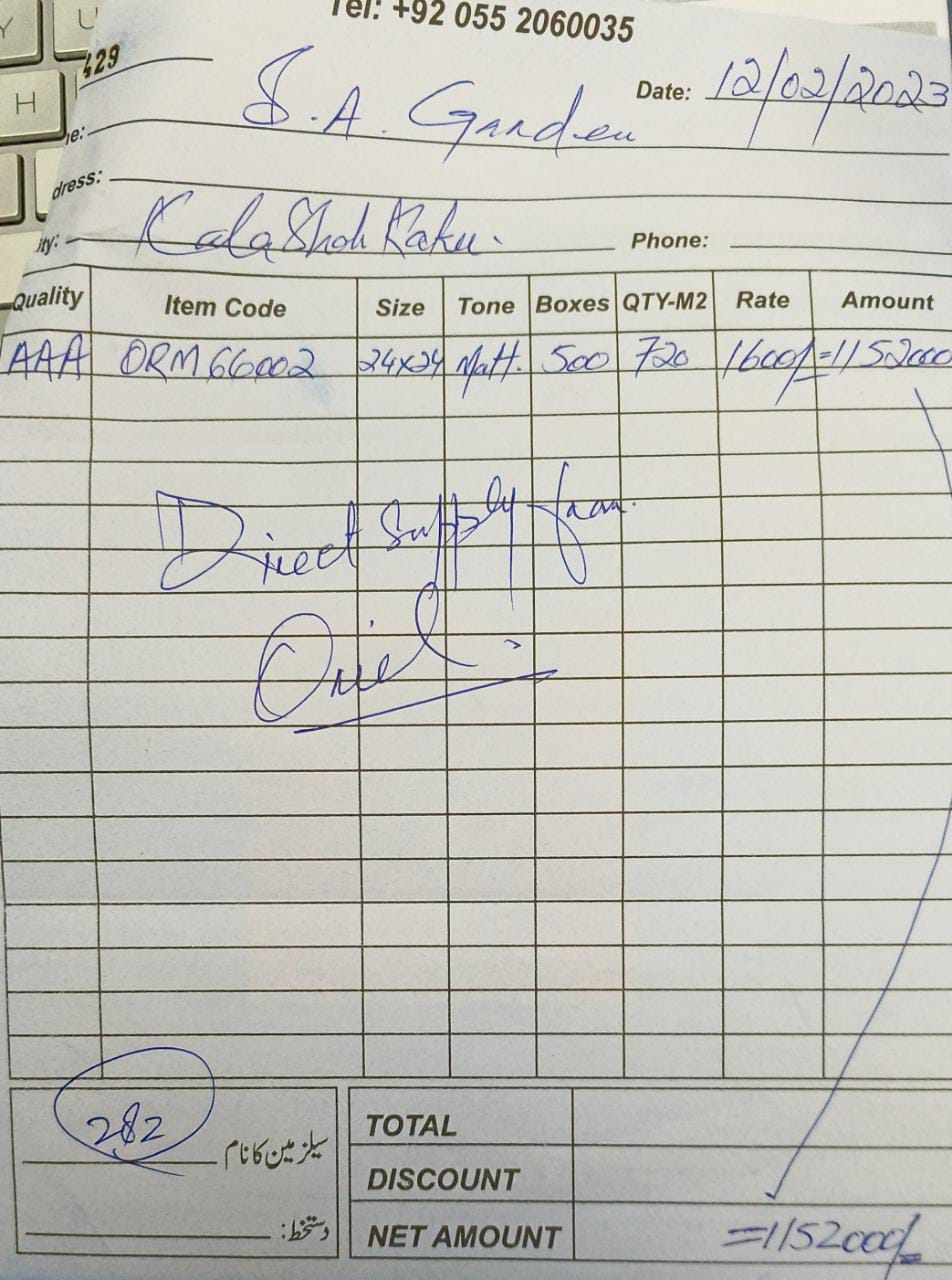 Tel: +92 055 2060035
429
Date: 12/02/2023
me: S.A. Garden
dress:
ity: Kala Shah Kaku. Phone:
Quality Item Code Size Tone Boxes QTY-M2 Rate Amount
AAA ORM 66002 24x24 Matt. 500 720 1600/= 1152000
Direct Supply from
Oriel.
282
سیلز مین کا نام
دستخط:
TOTAL
DISCOUNT
NET AMOUNT =1152000/=